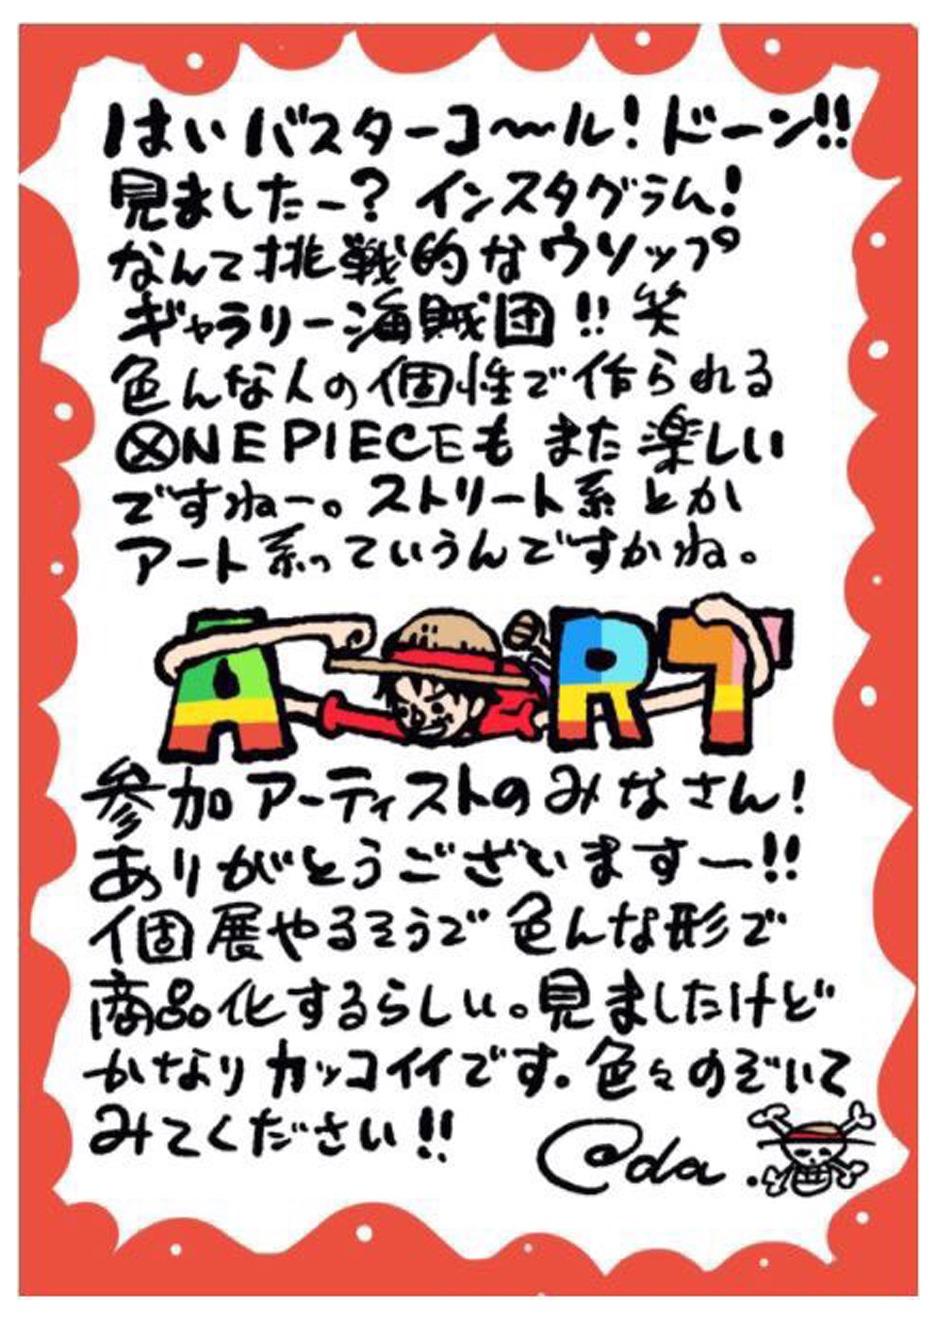 はい バスターコ〜〜ル！ドーン!!
見ましたー？ インスタグラム！
なんて挑戦的なウソップ
ギャラリー海賊団!! 笑
色んな人の個性で作られる
ONE PIECEも また楽しい
ですねー。ストリート系とか
アート系っていうんですかね。
ART
参加アーティストのみなさん！
ありがとうございますー!!
個展やるそうで 色んな形で
商品化するらしい。見ましたけど
かなりカッコイイです。色々のぞいて
みてください!!
@da.